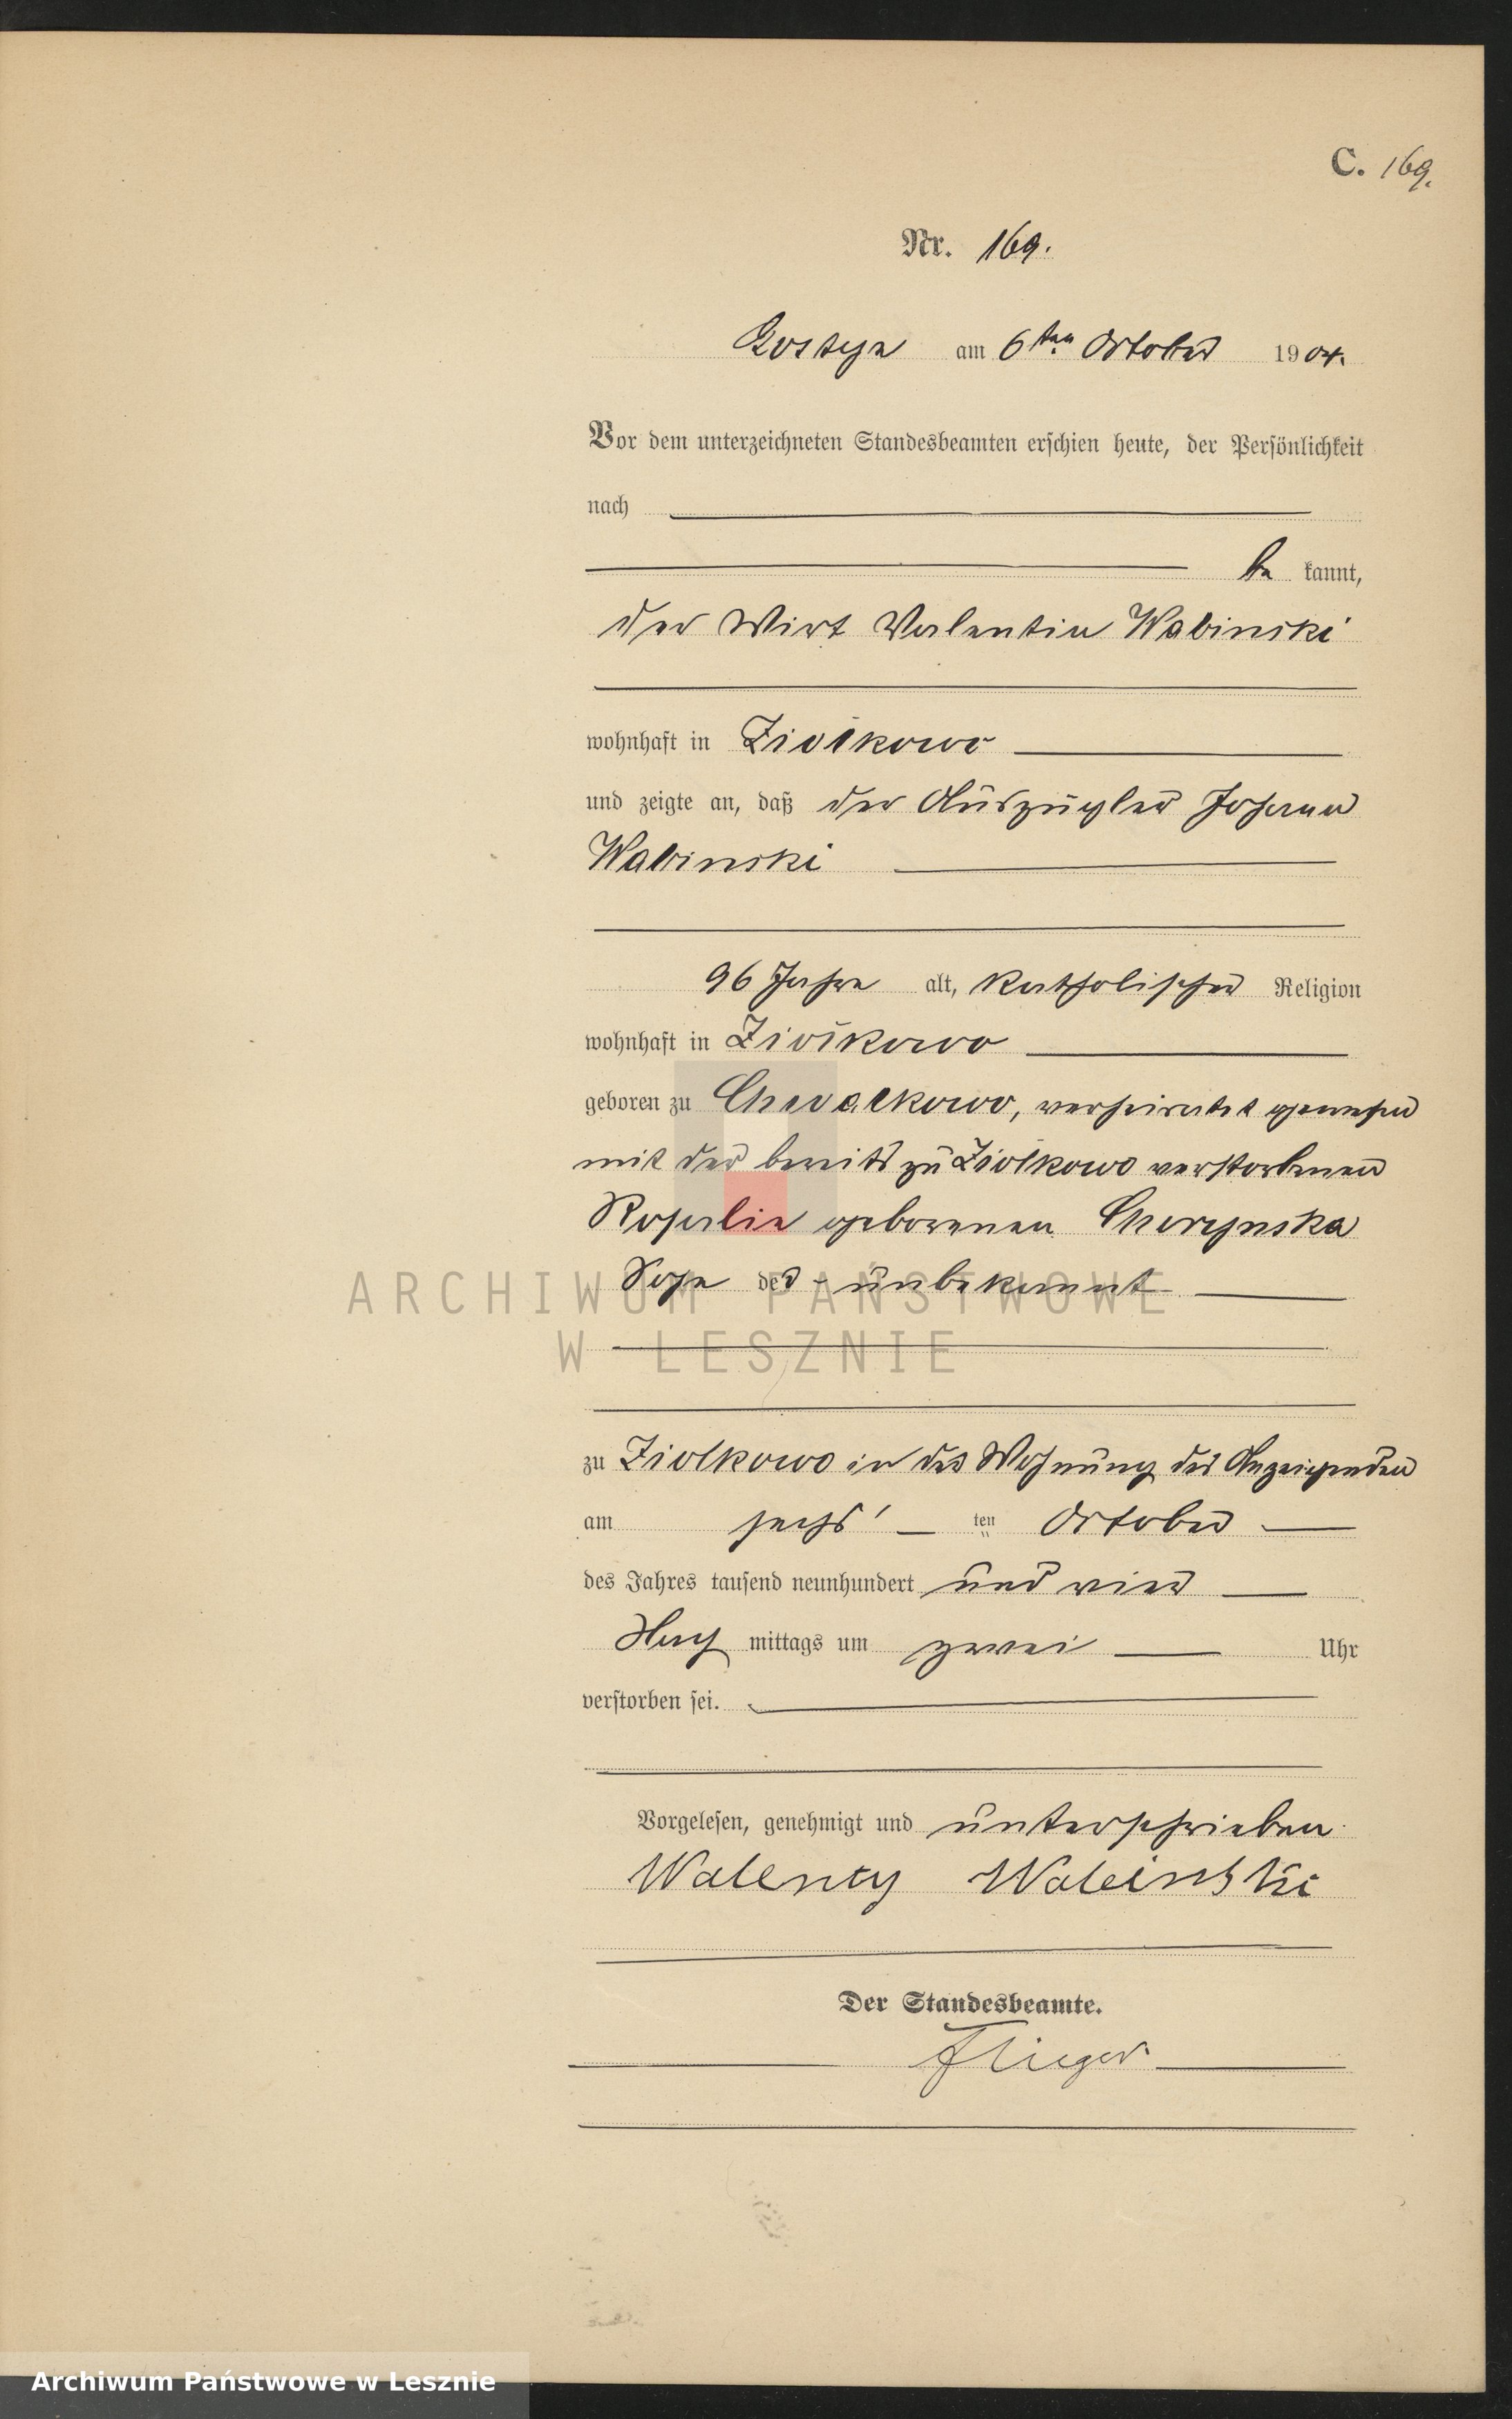 C. 169.
Nr. 169.
Gostyn am 6ten October 1904.
Vor dem unterzeichneten Standesbeamten erschien heute, der Persönlichkeit
nach
be kannt,
der Wirt Valentin Wabinski
wohnhaft in Ziolkowo
und zeigte an, daß der Auszügler Johann
Wabinski
96 Jahre alt, katholischer Religion
wohnhaft in Ziolkowo
geboren zu Chwalkowo, verheirathet gewesen
mit der bereits zu Ziolkowo verstorbenen
Rosalie geborenen
Sohn des - unbekannt
ARCHIWUM PAŃSTWOWE
W LESZNIE
zu Ziolkowo in der Wohnung des Anzeigenden
am sechs ten October
des Jahres tausend neunhundert und vier
Nach mittags um zwei Uhr
verstorben sei.
Vorgelesen, genehmigt und unterschrieben
Walenty Wabinski
Der Standesbeamte.
Flieger
Archiwum Państwowe w Lesznie